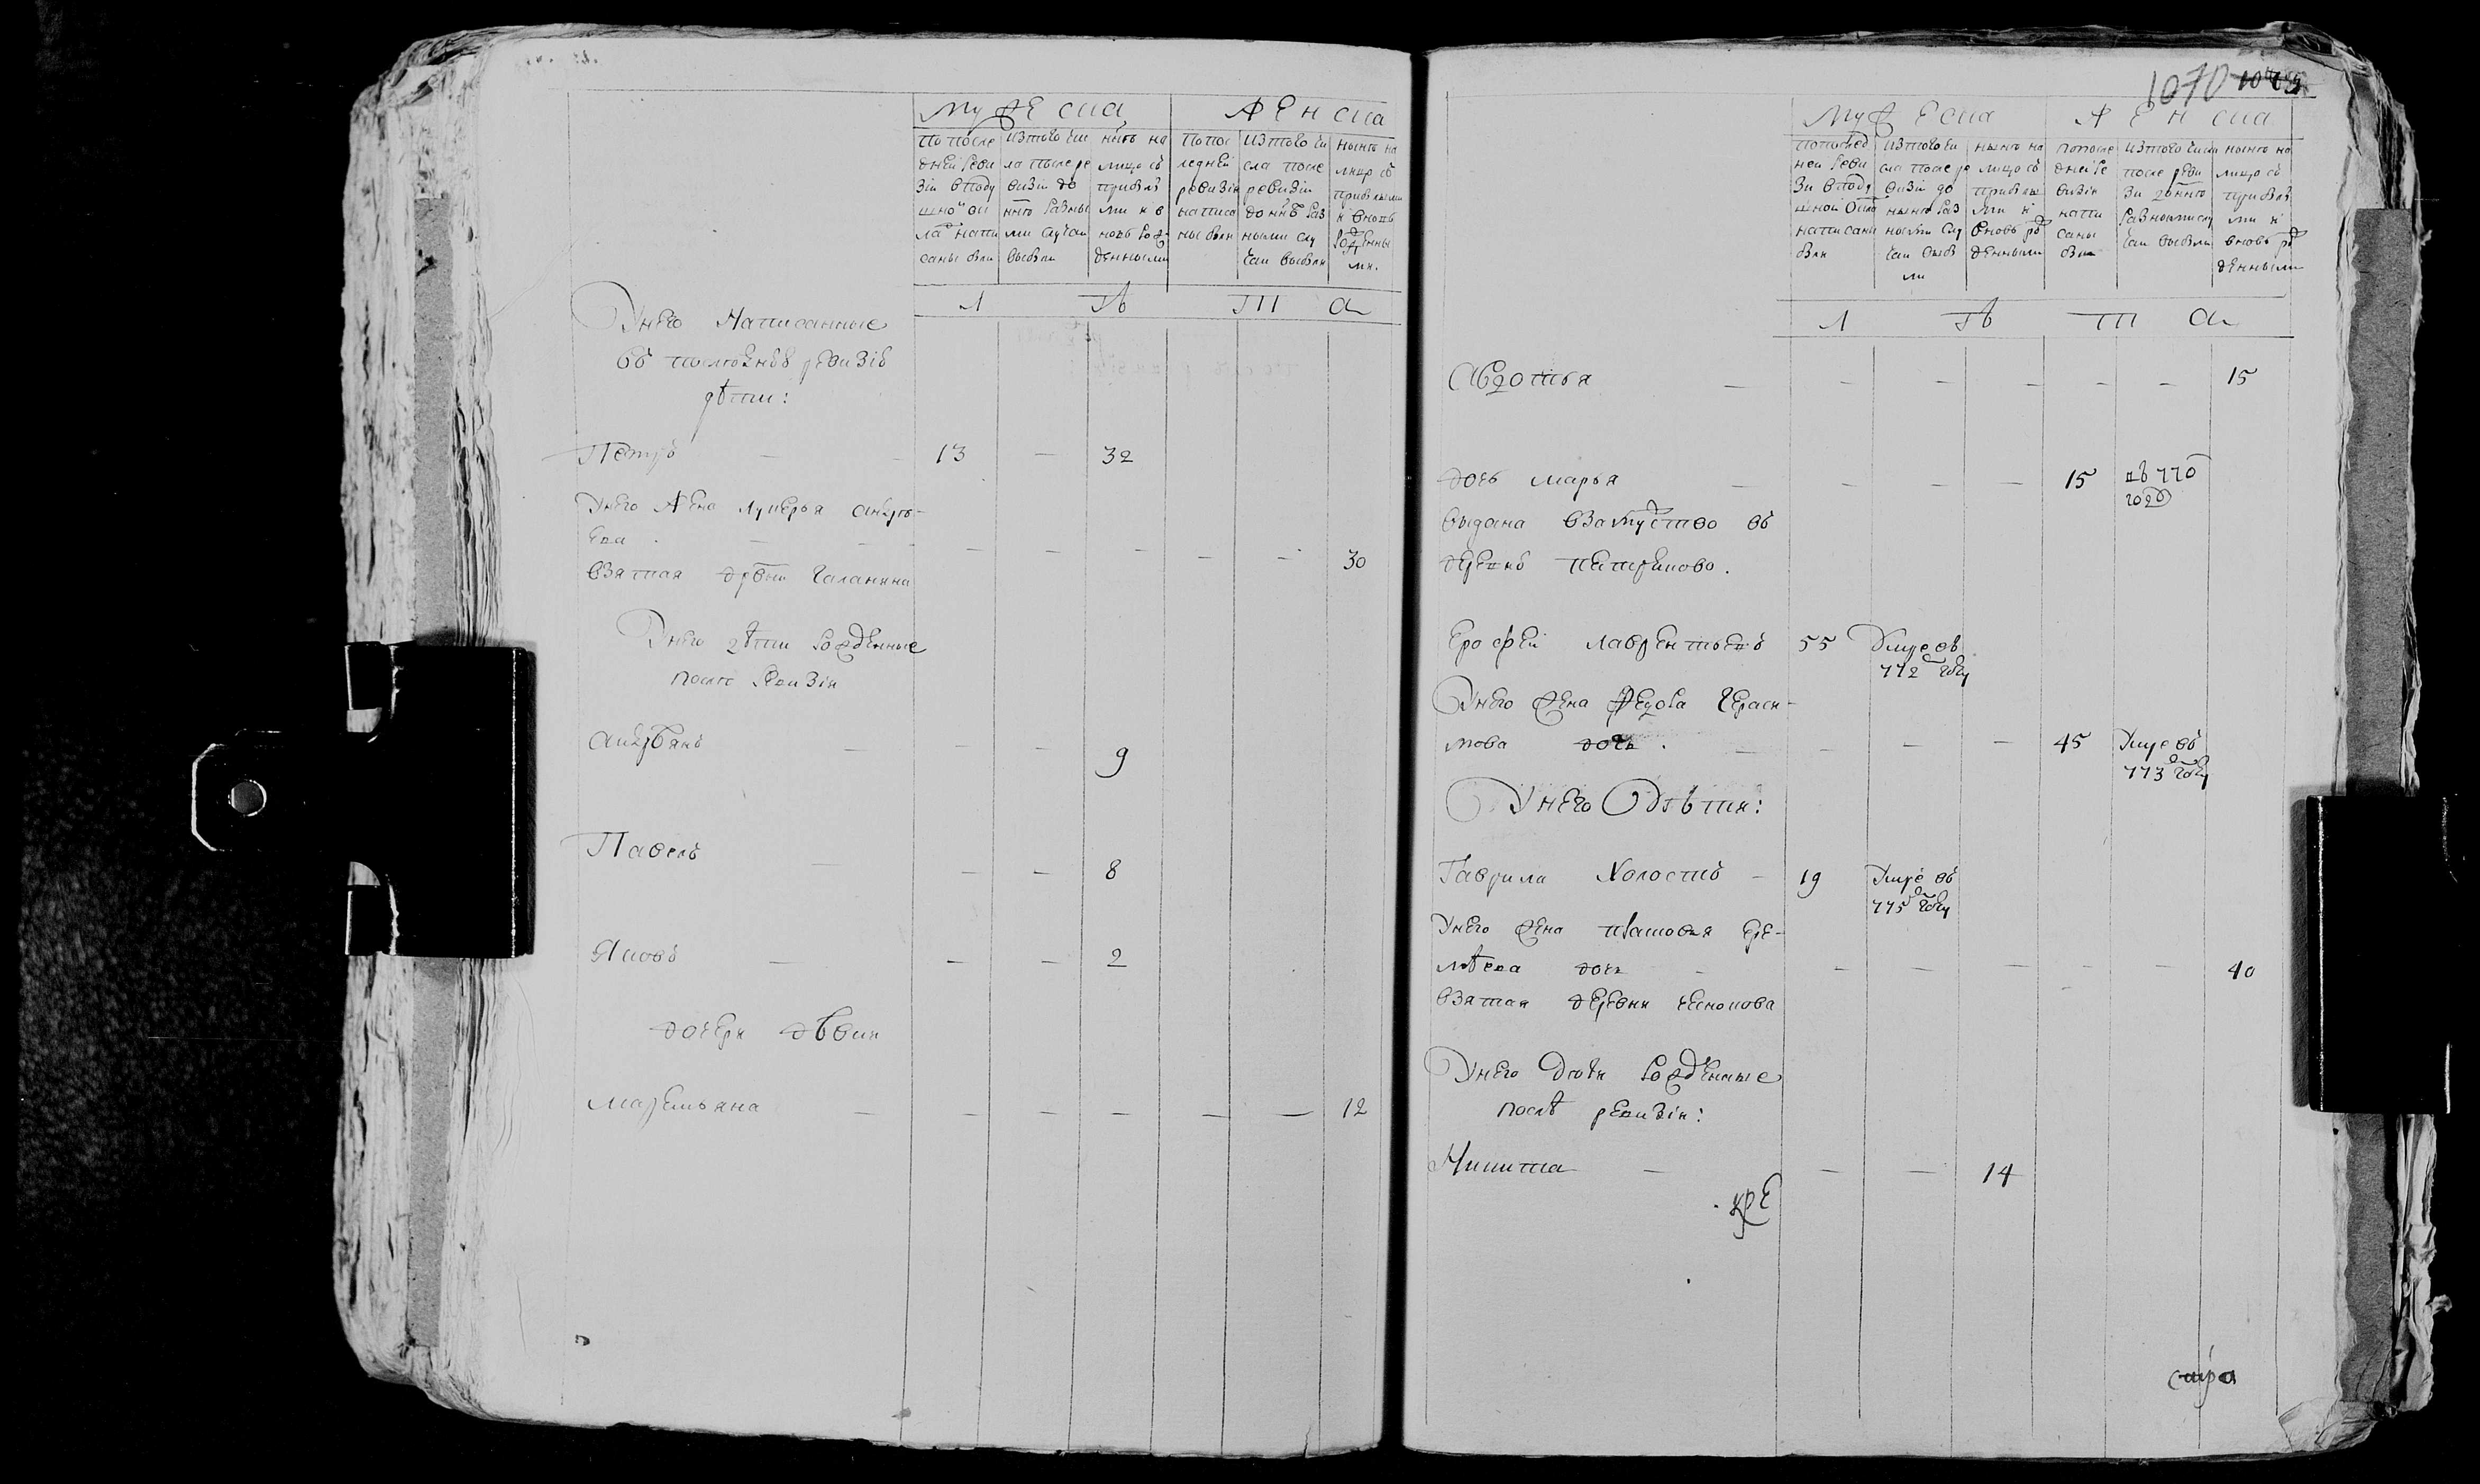 мужеска женска
по последней ревизіи в подушной окла написаны были
из того числа после ревизіи до ннѣ разными случаи выбыли
ныне на лицо съ прибылыми и вновь рожденными
по последней ревизіи написаны были
из того числа после ревизіи до ннѣ разными случаи выбыли
ныне на лицо съ прибылыми и вновь рожденными
Л Ѣ Т А
У него написанные
въ последней ревизіи
дѣти:
Петръ — 13 — 32
У него жена лукерья андрѣ-
ева — — — — — — 30
взятая дрвни галанина
У него дѣти рожденные
после ревизіи
андрѣянъ — — — 9
Павелъ — — — 8
Яковъ — — — 2
дочери дѣвки
маремьяна — — — — — — 12
1070
мужеска женска
по последней ревизіи в подушной окла написаны были
из того числа после ревизіи до ныне разными случаи выбыли
ныне на лицо съ прибылыми и вновь рожденными
по последней ревизіи написаны были
из того числа после ревизіи до ннѣ разными случаи выбыли
ныне на лицо съ прибылыми и вновь рожденными
Л Ѣ Т А
Авдотья — — — — — — 15
дочь марья — — — — 15 въ 770
году
выдана взамужство въ
деревню
Ерофей лаврентьевъ 55 Умре въ
772 году
У него жена федора гераси-
мова дочь — — — — 45 Умре въ
773 году
У него Дѣти:
Гаврила холостъ — 19 Умре въ
775 году
У него жена
дочь — — — — — — 40
взятая деревни
У него дѣти рожденные
послѣ ревизіи:
Никита — — — 14